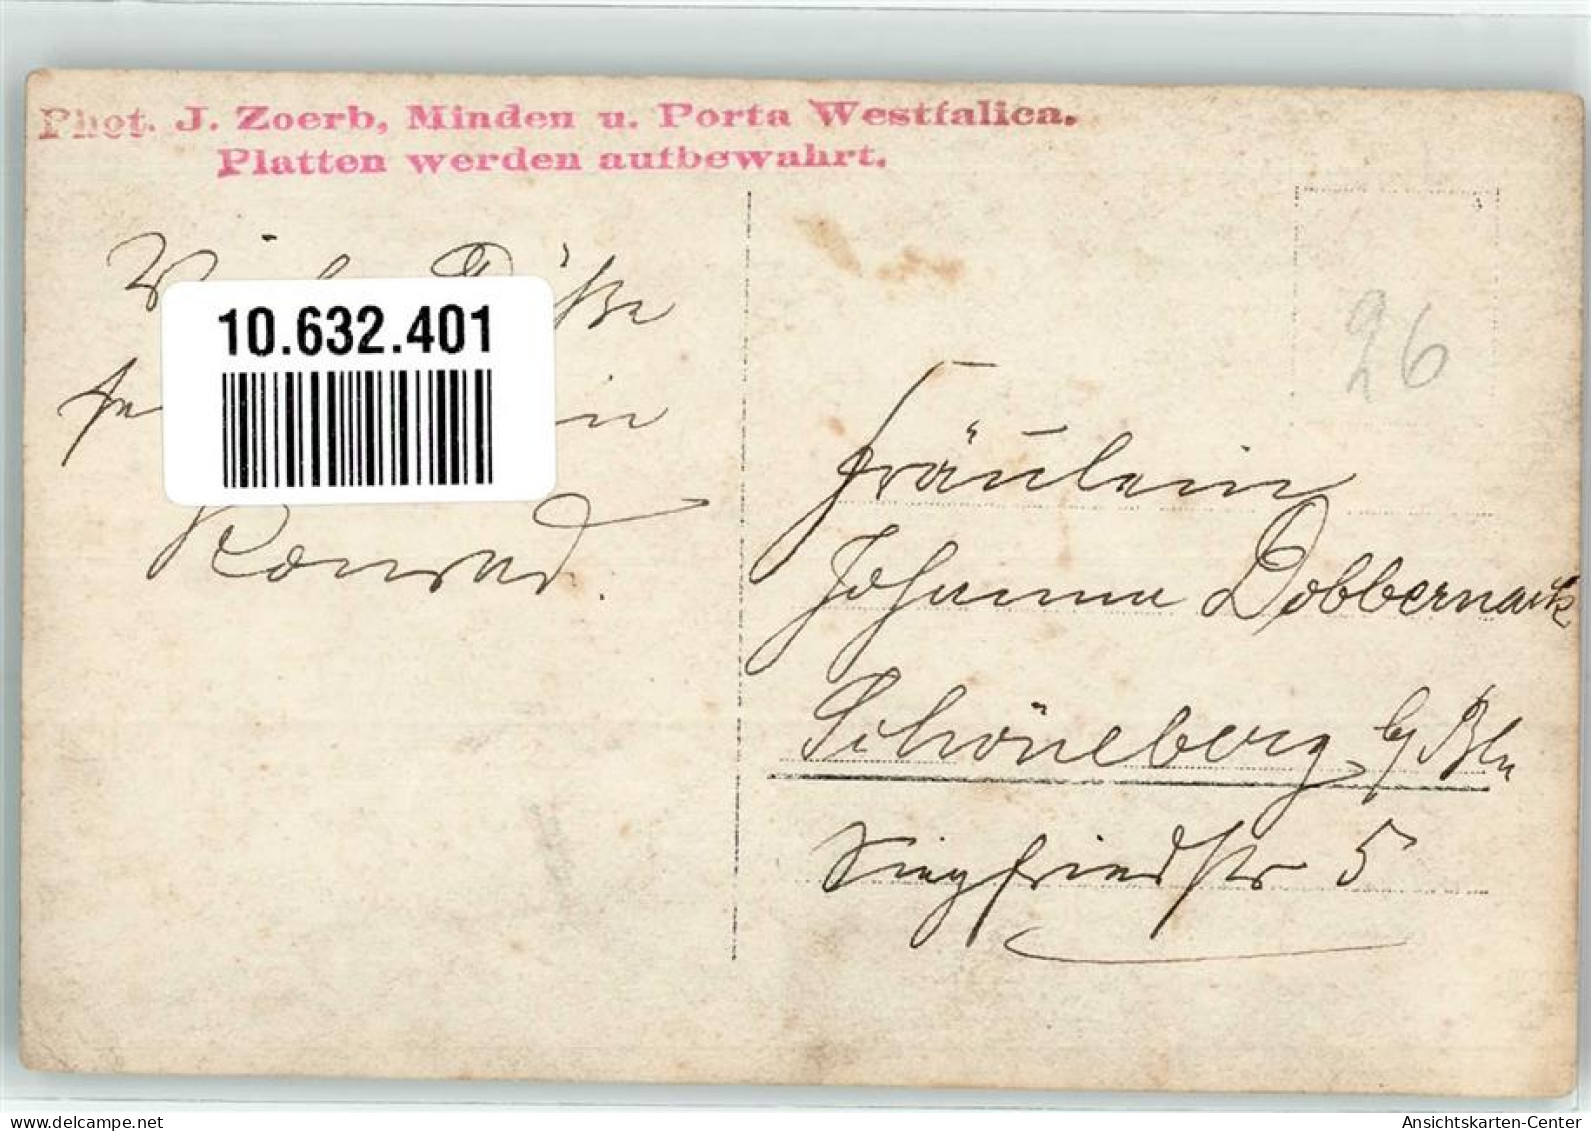 Phot. J. Zoerb, Minden u. Porta Westfalica.
Platten werden aufbewahrt.
10.632.401
Konrad.
26
Fräulein
Johanna Dobbernack
Schöneberg b/Bln
Siegfriedstr 5
www.delcampe.net
Ansichtskarten-Center